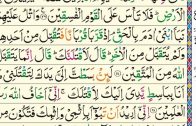 الْأَرْضِ ۚ فَلَا تَأْسَ عَلَى الْقَوْمِ الْفٰسِقِينَ ۝ وَاتْلُ عَلَيْهِمْ
نَبَأَ ابْنَيْ اٰدَمَ بِالْحَقِّ ۘ إِذْ قَرَّبَا قُرْبَانًا فَتُقُبِّلَ مِنْ أَحَدِهِمَا
وَلَمْ يُتَقَبَّلْ مِنَ الْاٰخَرِ ۖ قَالَ لَأَقْتُلَنَّكَ ۖ قَالَ إِنَّمَا يَتَقَبَّلُ
اللّٰهُ مِنَ الْمُتَّقِينَ ۝ لَئِنْ بَسَطْتَ إِلَيَّ يَدَكَ لِتَقْتُلَنِي
مَا أَنَا بِبَاسِطٍ يَدِيَ إِلَيْكَ لِأَقْتُلَكَ ۚ إِنِّي أَخَافُ اللّٰهَ رَبَّ
الْعٰلَمِينَ ۝ إِنِّي أُرِيدُ أَنْ تَبُوءَ بِإِثْمِي وَإِثْمِكَ فَتَكُونَ مِنْ